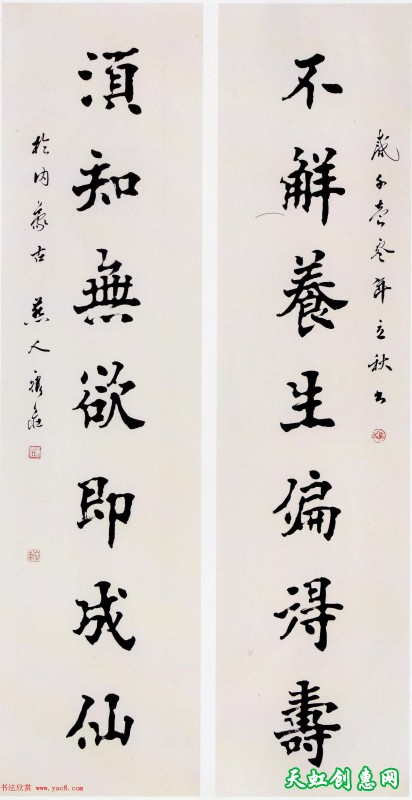 不解養生偏得壽
千壹零年立秋书
須知無欲即成仙
於内蒙古 燕人
书法欣赏 www.yac8.com
天虹创惠网